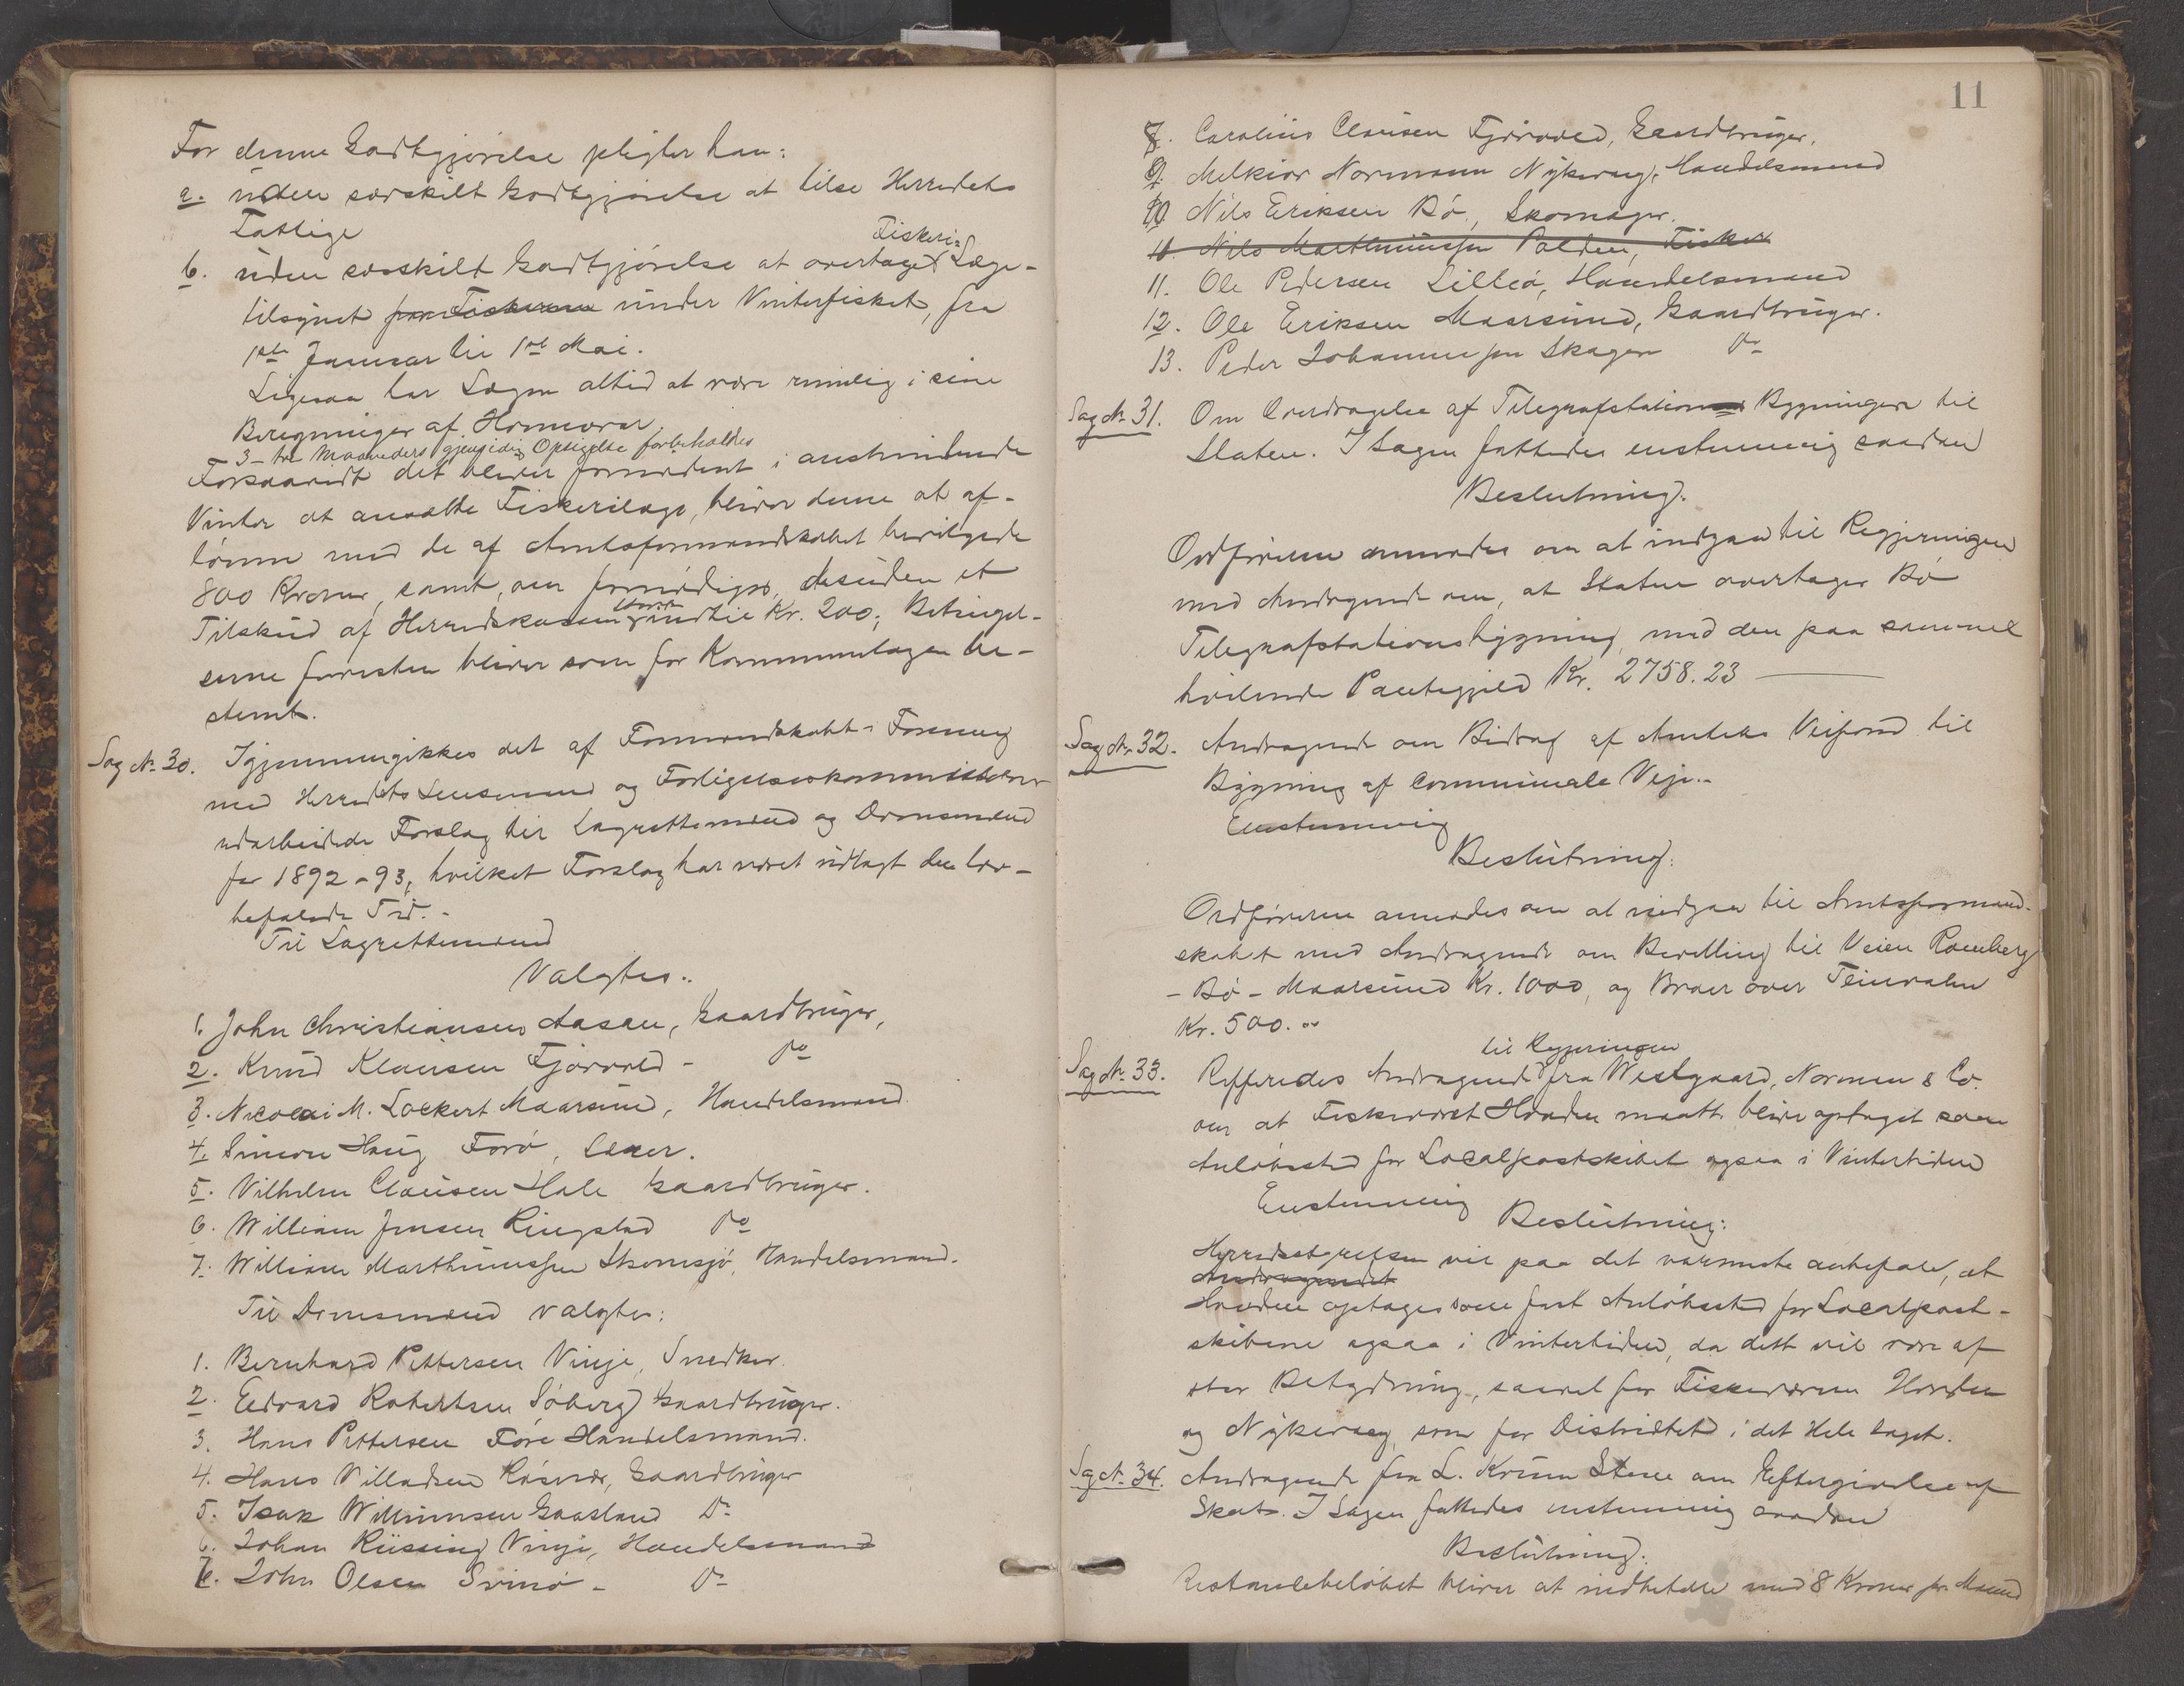 For denne Godtgjørelse pligter han:
a. uden særskilt Godtgjørelse at tilse Herredets
Fattige
Fiskeri=
b. uden særskilt Godtgjørelse at overtage Læge-
tilsynet for Fiskerne under Vinterfisket, fra
1ste Januar til 1ste Mai.
Ligesaa har Lægen altid at være rimelig i sine
Beregninger af Honorar.
3- tre Maaneders gjensidig Opsigelse forbeholdes
Forsaavidt det bliver fornødent i anstundende
Vinter at ansætte Fiskerilæge, bliver denne at af-
lønne med de af Amtsformandskabet bevilgede
800 Kroner, samt, om fornødiges, desuden et
Tilskud af Herredskassen indtil Kr. 200; Betingel-
serne forresten bliver som for Kommunelægen be-
stemt.
Sag № 30. Igjennemgikkes det af Formandskabet i Forening
med Herredets Lensmand og Forligelseskommissærer
udarbeidede Forslag til Lagrettemænd og Domsmænd
for 1892-93, hvilket Forslag har været udlagt den lov-
befalede Tid.-
Til Lagrettemænd
Valgtes:
1. John Christiansen Aasan, Gaardbruger,
2. Knud Klausen Fjærvold - do
3. Nicolai M. Lockert Maarsund, Handelsmand
4. Simon Haug Forø, Lærer.
5. Vilhelm Clausen Hole Gaardbruger.
6. William Jensen Ringstad do
7. William Marthinussen Skomsjø, Handelsmand.
Til Domsmænd valgtes:
1. Bernhard Pettersen Vinje, Snedker.
2. Edvard Robertsen Søberg Gaardbruger.
3. Hans Pettersen Føre Handelsmand.
4. Hans Villadsen Gaardbruger
5. Isak Willumsen Gaasland Do
6. Johan Rüssing Vinje, Handelsmand
7. John Olsen Svinø - Do
11
8. Carolius Clausen Fjærvold, Gaardbruger.
9. Melkior Normann Nykvaag, Handelsmand
10 Nils Eriksen Bø, Skomager.
10 Nils Marthinussen Valden, Fisker
11. Ole Pedersen Lilleø, Handelsmand
12. Ole Eriksen Maarsund, Gaardbruger.
13. Peder Johannessen Skagen Do
Sag № 31. Om Overdragelse af Telegrafstations Bygningen til
Staten. I Sagen fattedes enstemmig saadan
Beslutning:
Ordføreren anmodes om at indgaa til Regjeringen
med Andragende om, at Staten overtager Bø
Telegrafstationsbygning, med den paa samme
hvilende Pantegjæld Kr. 2758.23
Sag № 32. Andragende om Bidrag af Amtets Veifond til
Bygning af communale Veje.-
Enstemmig
Beslutning:
Ordføreren anmodes om at indgaa til Amtsformand-
skabet med Andragende om Bevilling til Veien
- Bø - Maarsund Kr. 1000, og Broer over
Kr. 500. -
til Regjeringen
Sag № 33. Refferedes Andragende fra Westgaard, Norman & Co.
om at Fiskeværet Hovden maatte blive optaget som
Anløbssted for Localpostskibet ogsaa i Vintertiden
Enstemmig
Beslutning:
Herredsstyrelsen vil paa det varmeste anbefale, at
Andragendet
Hovden optages som fast Anløbssted for Localpost-
skibene ogsaa i Vintertiden, da dette vil være af
stor Betydning, saavel for Fiskeværene Hovden
og Nykvaag, som for Distriktet i det Hele taget.
Sag № 34. Andragende fra L. Krum Stene om Eftergivelse af
Skat. I Sagen fattedes enstemmig saadan
Beslutning:
Restancebeløbet bliver at indbetale med 8 Kroner pr. Maaned